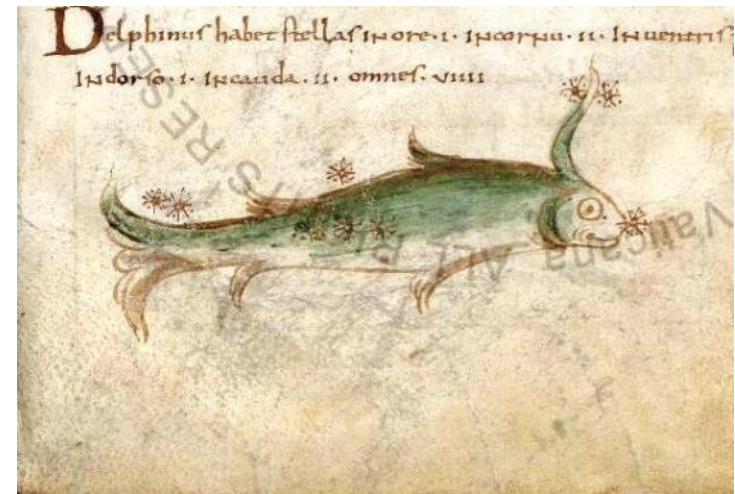 Delphinus habet stellas in ore · i · in cornu · ii · In uentris
In dorso · i · In cauda · ii · omnes · uiiii
Vaticana ALL RIGHTS RESER